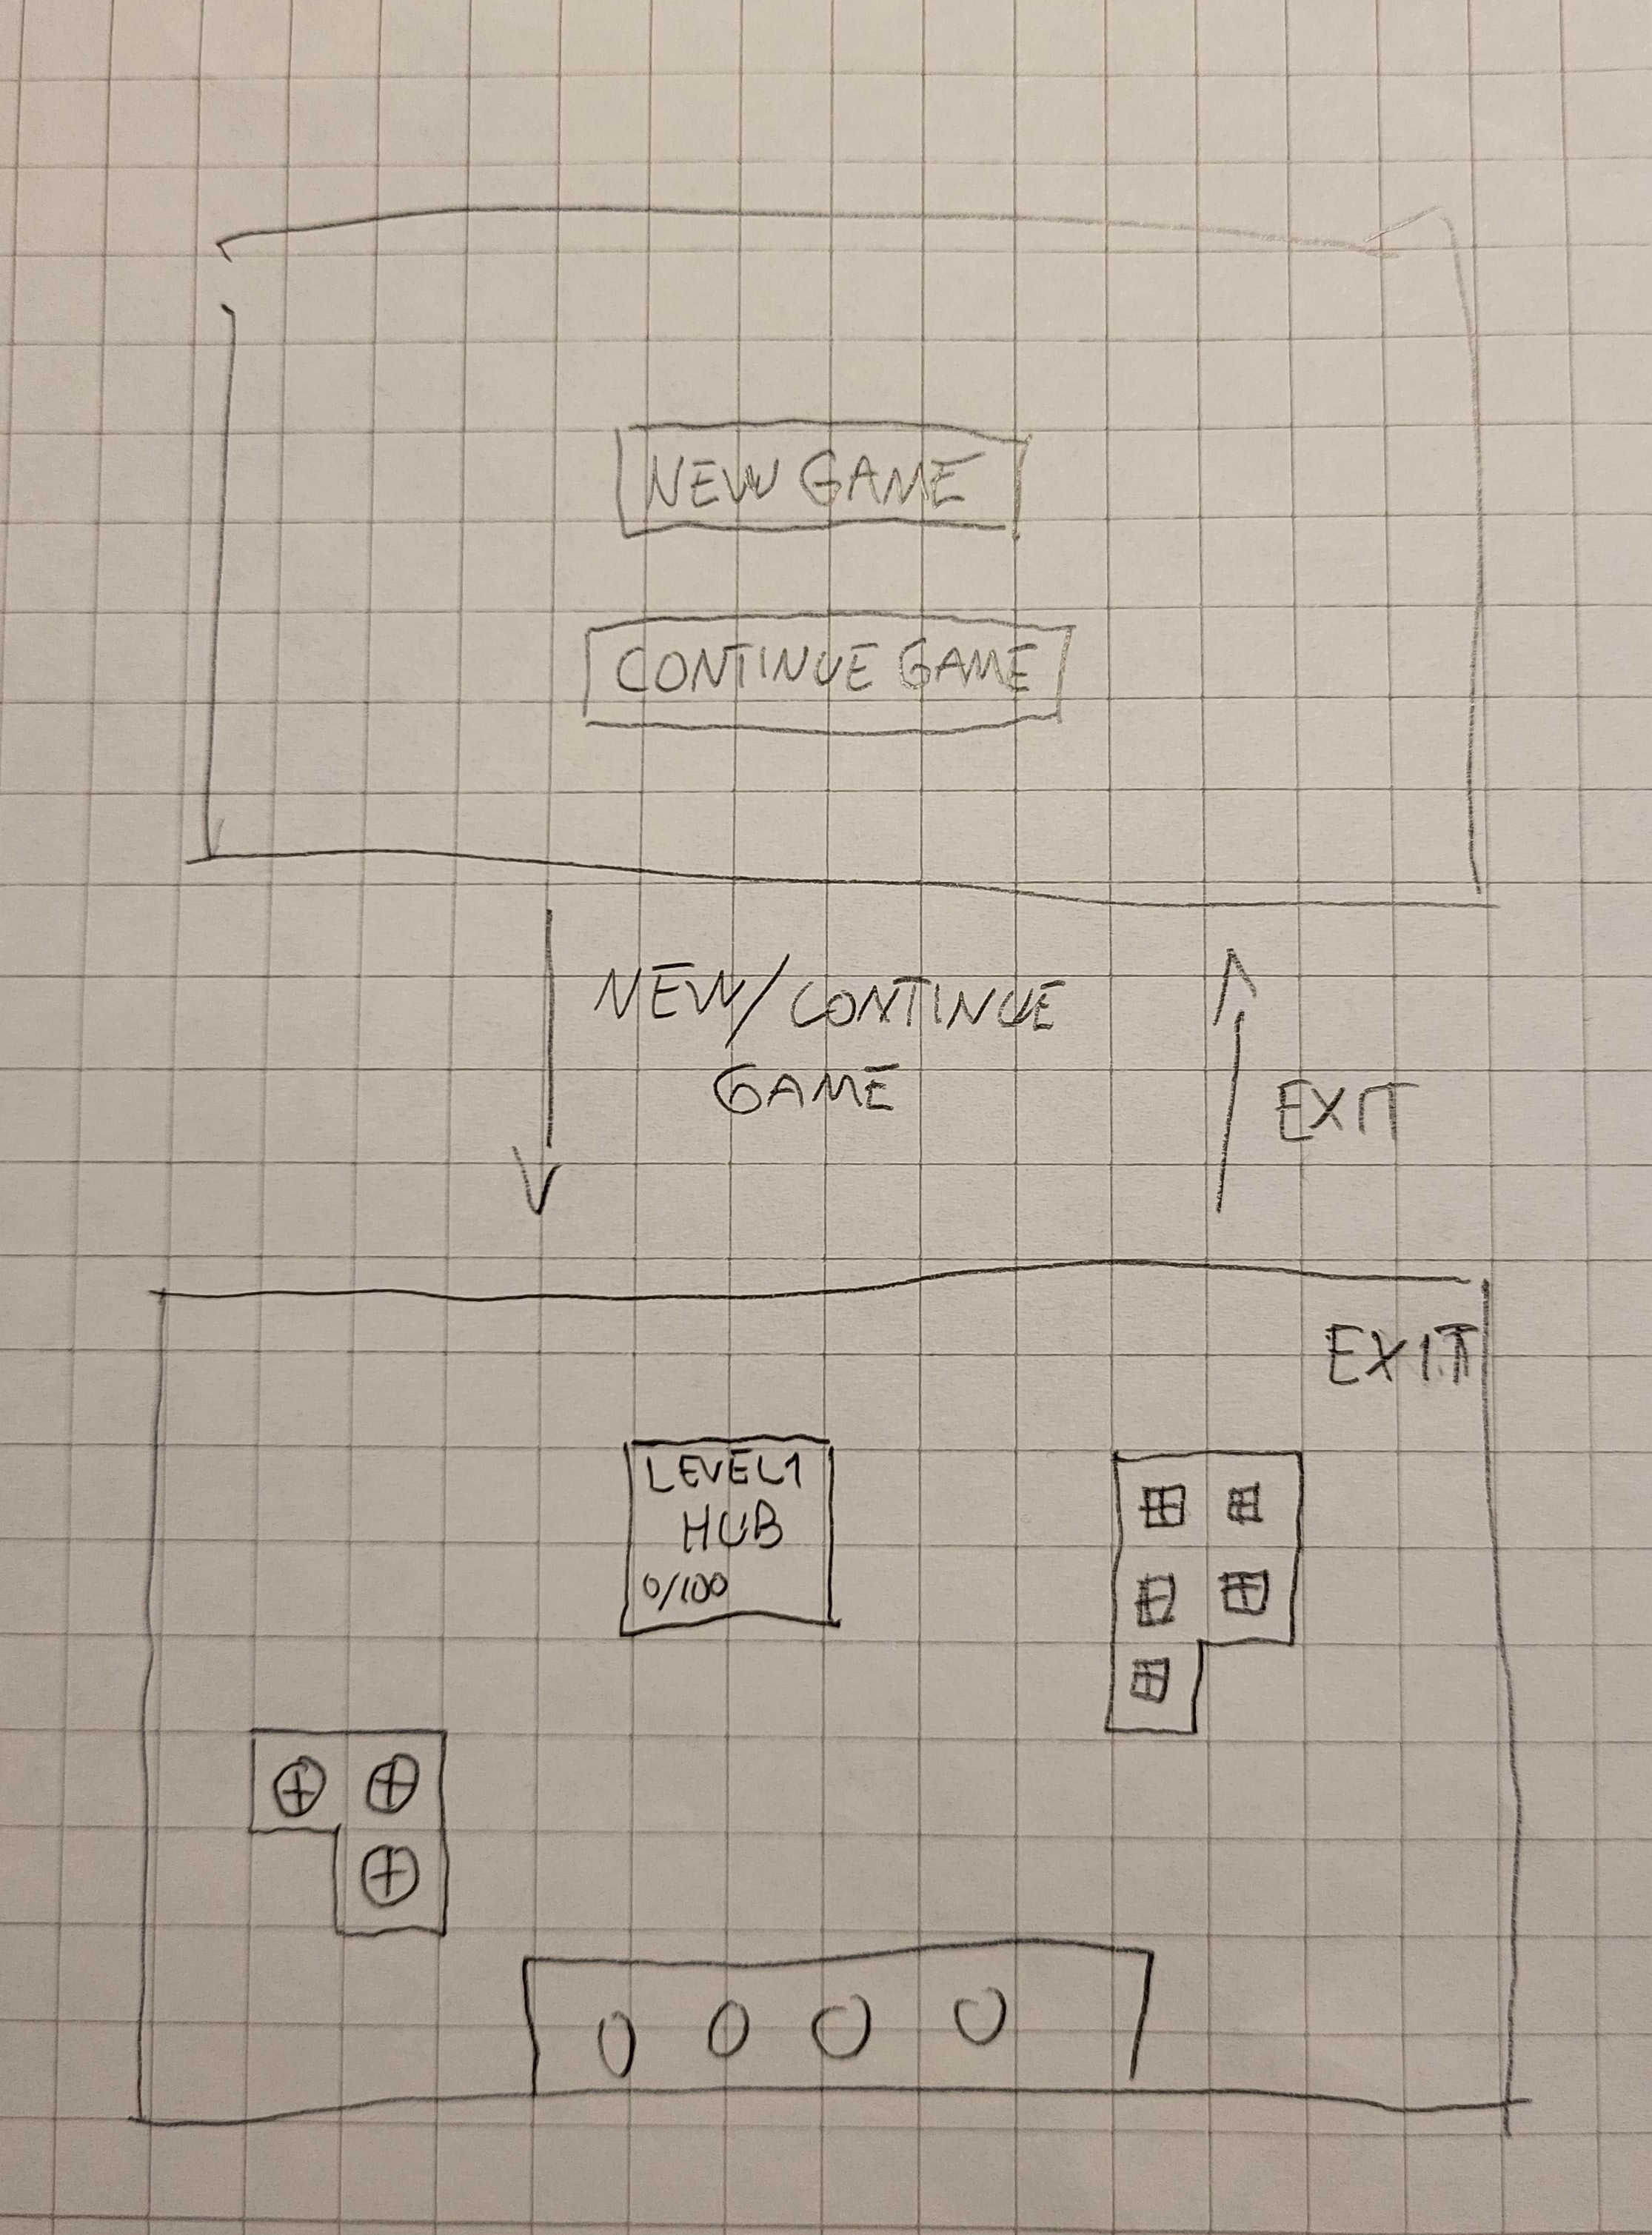 NEW GAME
CONTINUE GAME
NEW/CONTINUE
GAME
EXIT
EXIT
LEVEL1
HUB
0/100